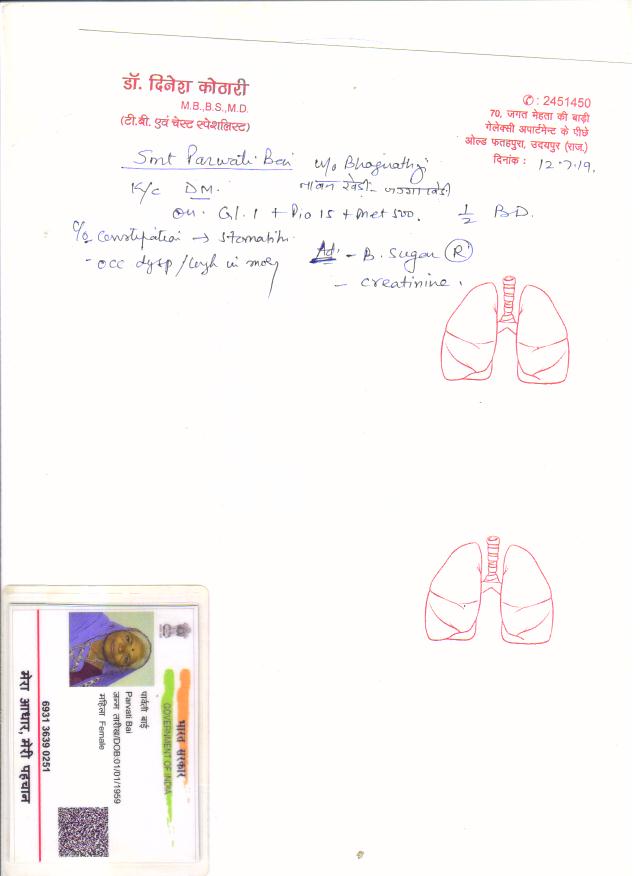 डॉ. दिनेश कोठारी
M.B.,B.S.,M.D.
(टी.बी. एवं चेस्ट स्पेशलिस्ट)
✆: 2451450
70, जगत मेहता की बाड़ी
गेलेक्सी अपार्टमेन्ट के पीछे
ओल्ड फतहपुरा, उदयपुर (राज.)
दिनांक : 12.7.19.
Smt Parwati Bai w/o Bhagirathji
K/c DM.
on. Gl. 1 + Pio 15 + Met 500. 1/2 BD.
c/o Constipation → Stomatitis
- occ dysp /
Ad. - B. Sugar (R)
- Creatinine.
भारत सरकार
GOVERNMENT OF INDIA
पार्वती बाई
Parvati Bai
जन्म तारीख/DOB:01/01/1959
महिला Female
6931 3639 0251
मेरा आधार, मेरी पहचान